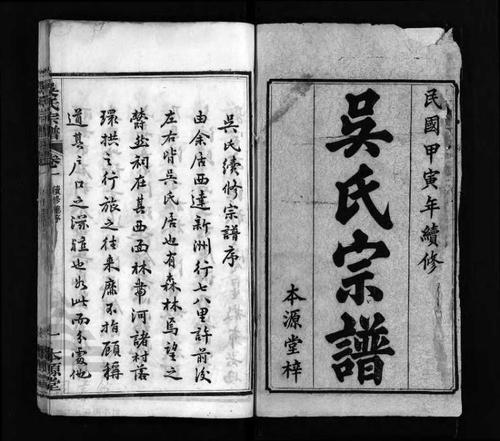 民國甲寅年續修
吳氏宗譜
本源堂梓
吳氏續修宗譜序
由余居西達新洲行七八里許前後
左右皆吳氏居也有森林焉望之
蔚然祠在其西面林帶河諸村落
環拱之行旅之往來靡不指顧稱
道其戶口之深
也如此而分處他
吳氏宗譜
卷一
續修譜序
一
本源堂